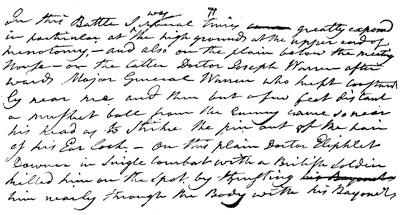 In this Battle I was several times greatly exposed
in particular at the high grounds at the upper end of
Menotomy – and also on the plain below the meeting
House – on the latter Doctor Joseph Warren after
wards Major General Warren who kept constant
ly near me, and then but a few feet distant
a musket ball from the enemy came so near
his head as to strike the pin out of the hair
of his Ear Lock – On this plain Doctor Eliphlet
Downer in single combat with a British Soldier
killed him on the spot, by thrusting his Bayonet
him nearly through the Body with his Bayonet